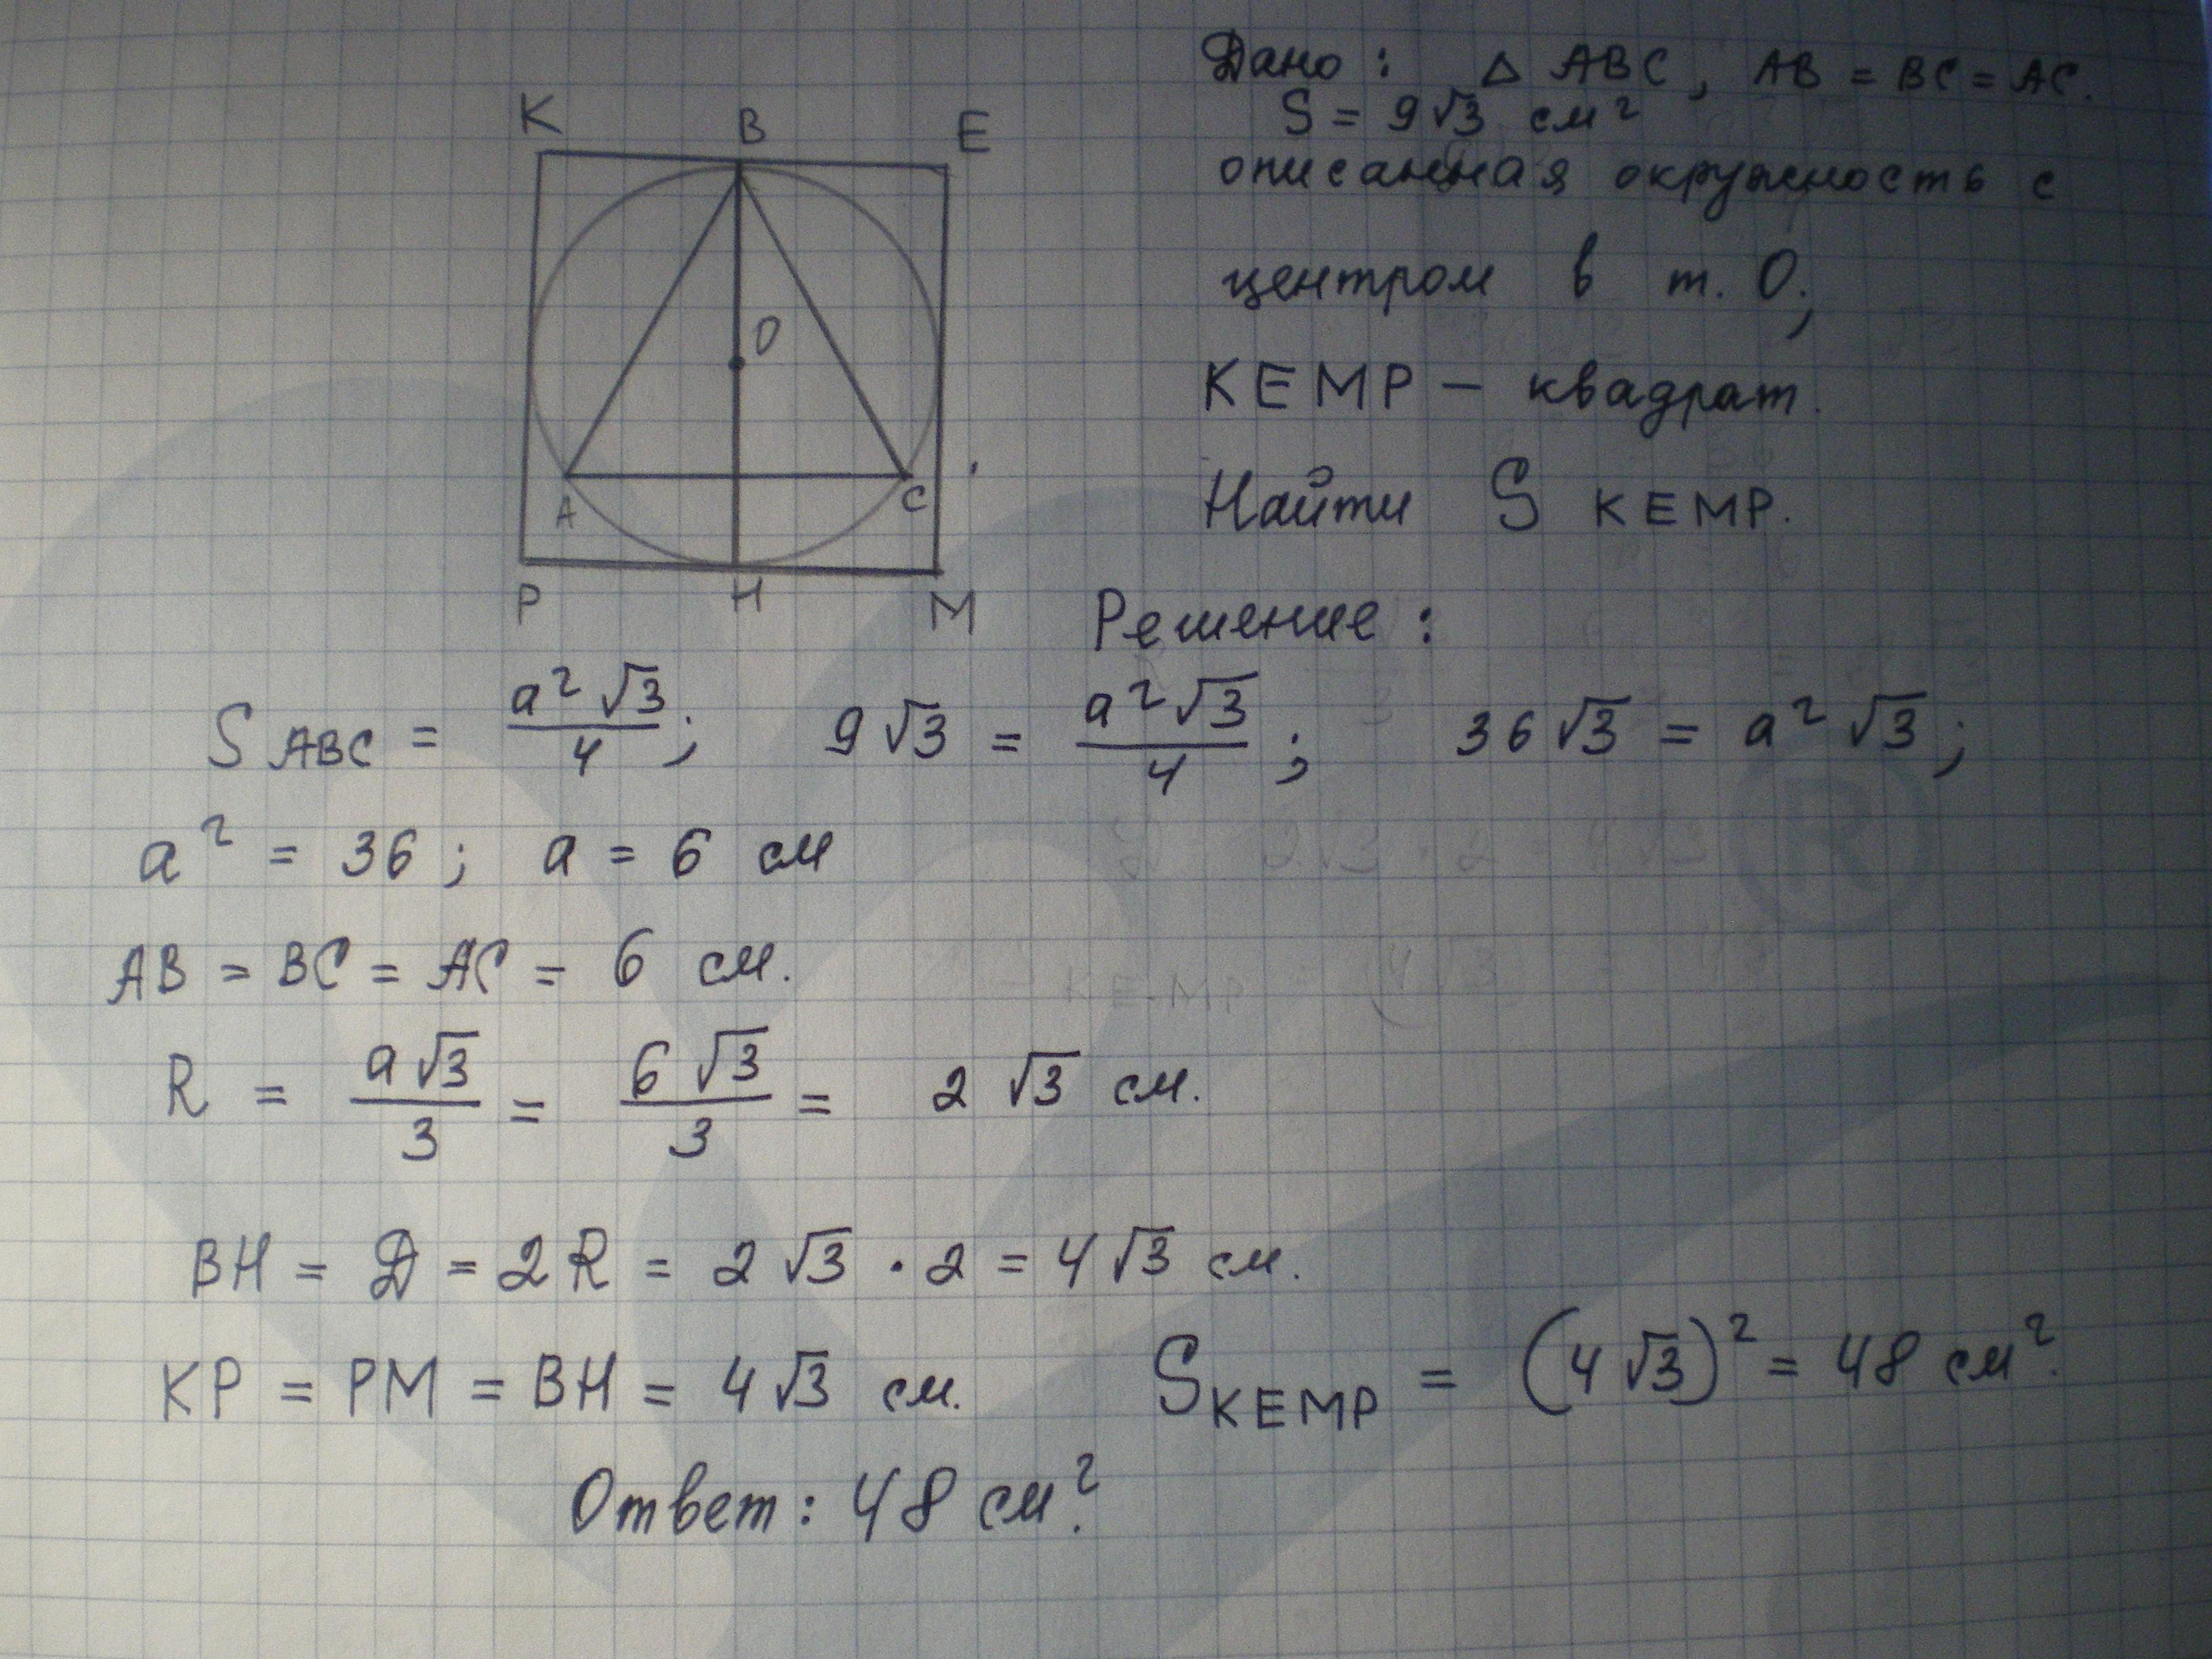 K B E
O
A C
P H M
Дано: △ ABC, AB = BC = AC.
S = 9√3 см²
описанная окружность с
центром в т. O;
KEMP – квадрат.
Найти S KEMP.
Решение:
S ABC = a²√3/4; 9√3 = a²√3/4; 36√3 = a²√3;
a² = 36; a = 6 см
AB = BC = AC = 6 см.
R = a√3/3 = 6√3/3 = 2√3 см.
BH = D = 2R = 2√3 · 2 = 4√3 см.
KP = PM = BH = 4√3 см. S KEMP = (4√3)² = 48 см².
Ответ: 48 см².